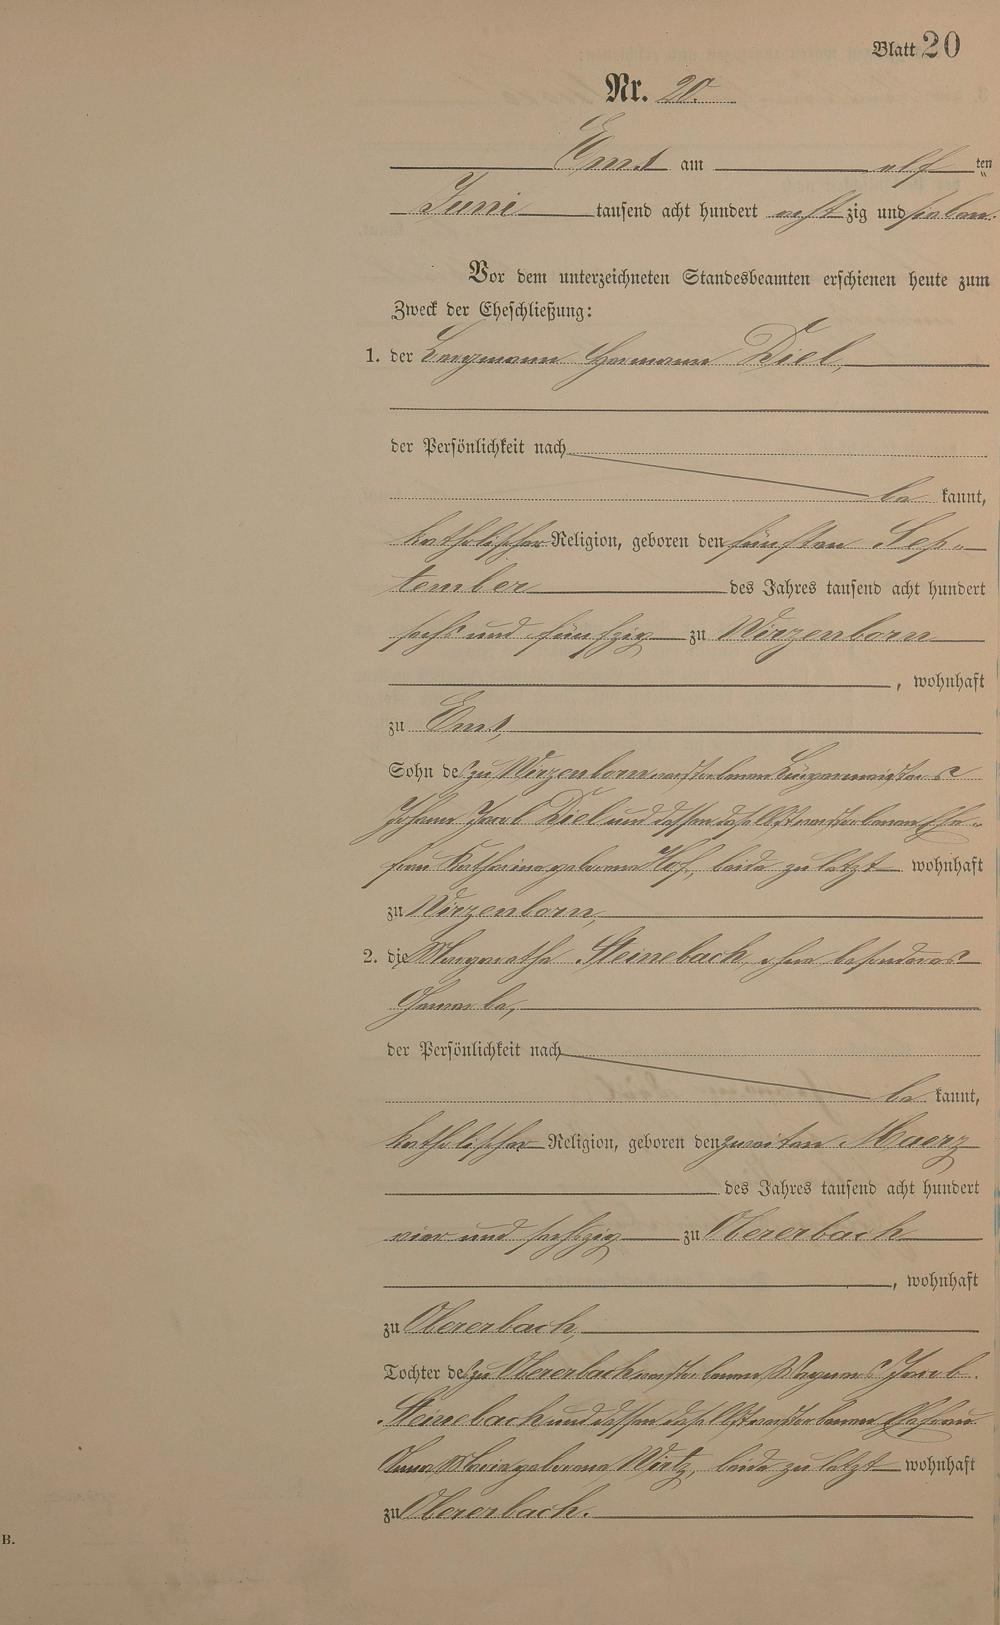 Blatt 20
Nr. 20.
Ems am elf ten
Juni tausend acht hundert acht zig und sieben.
Vor dem unterzeichneten Standesbeamten erschienen heute zum
Zweck der Eheschließung:
1. der Bergmann Hermann Diel,
der Persönlichkeit nach
be kannt,
katholischer Religion, geboren den fünften Sep-
tember des Jahres tausend acht hundert
sechs und fünfzig zu Wirzenborn
, wohnhaft
zu Ems,
Sohn des zu Wirzenborn verstorbenen Bürgermeisters
Johann Jacob Diel und dessen daselbst verstorbenen Ehe-
frau Katharina geborene Hof, beide zuletzt wohnhaft
zu Wirzenborn,
2. die Margaretha Steinebach, ohne besonderes
Gewerbe,
der Persönlichkeit nach
be kannt,
katholischer Religion, geboren den zweiten Maerz
des Jahres tausend acht hundert
vier und sechszig zu Obererbach
, wohnhaft
zu Obererbach,
Tochter des zu Obererbach verstorbenen Wagners Jacob
Steinebach und dessen daselbst verstorbenen Ehefrau
Anna Maria geborene Wirtz, beide zuletzt wohnhaft
zu Obererbach.
B.